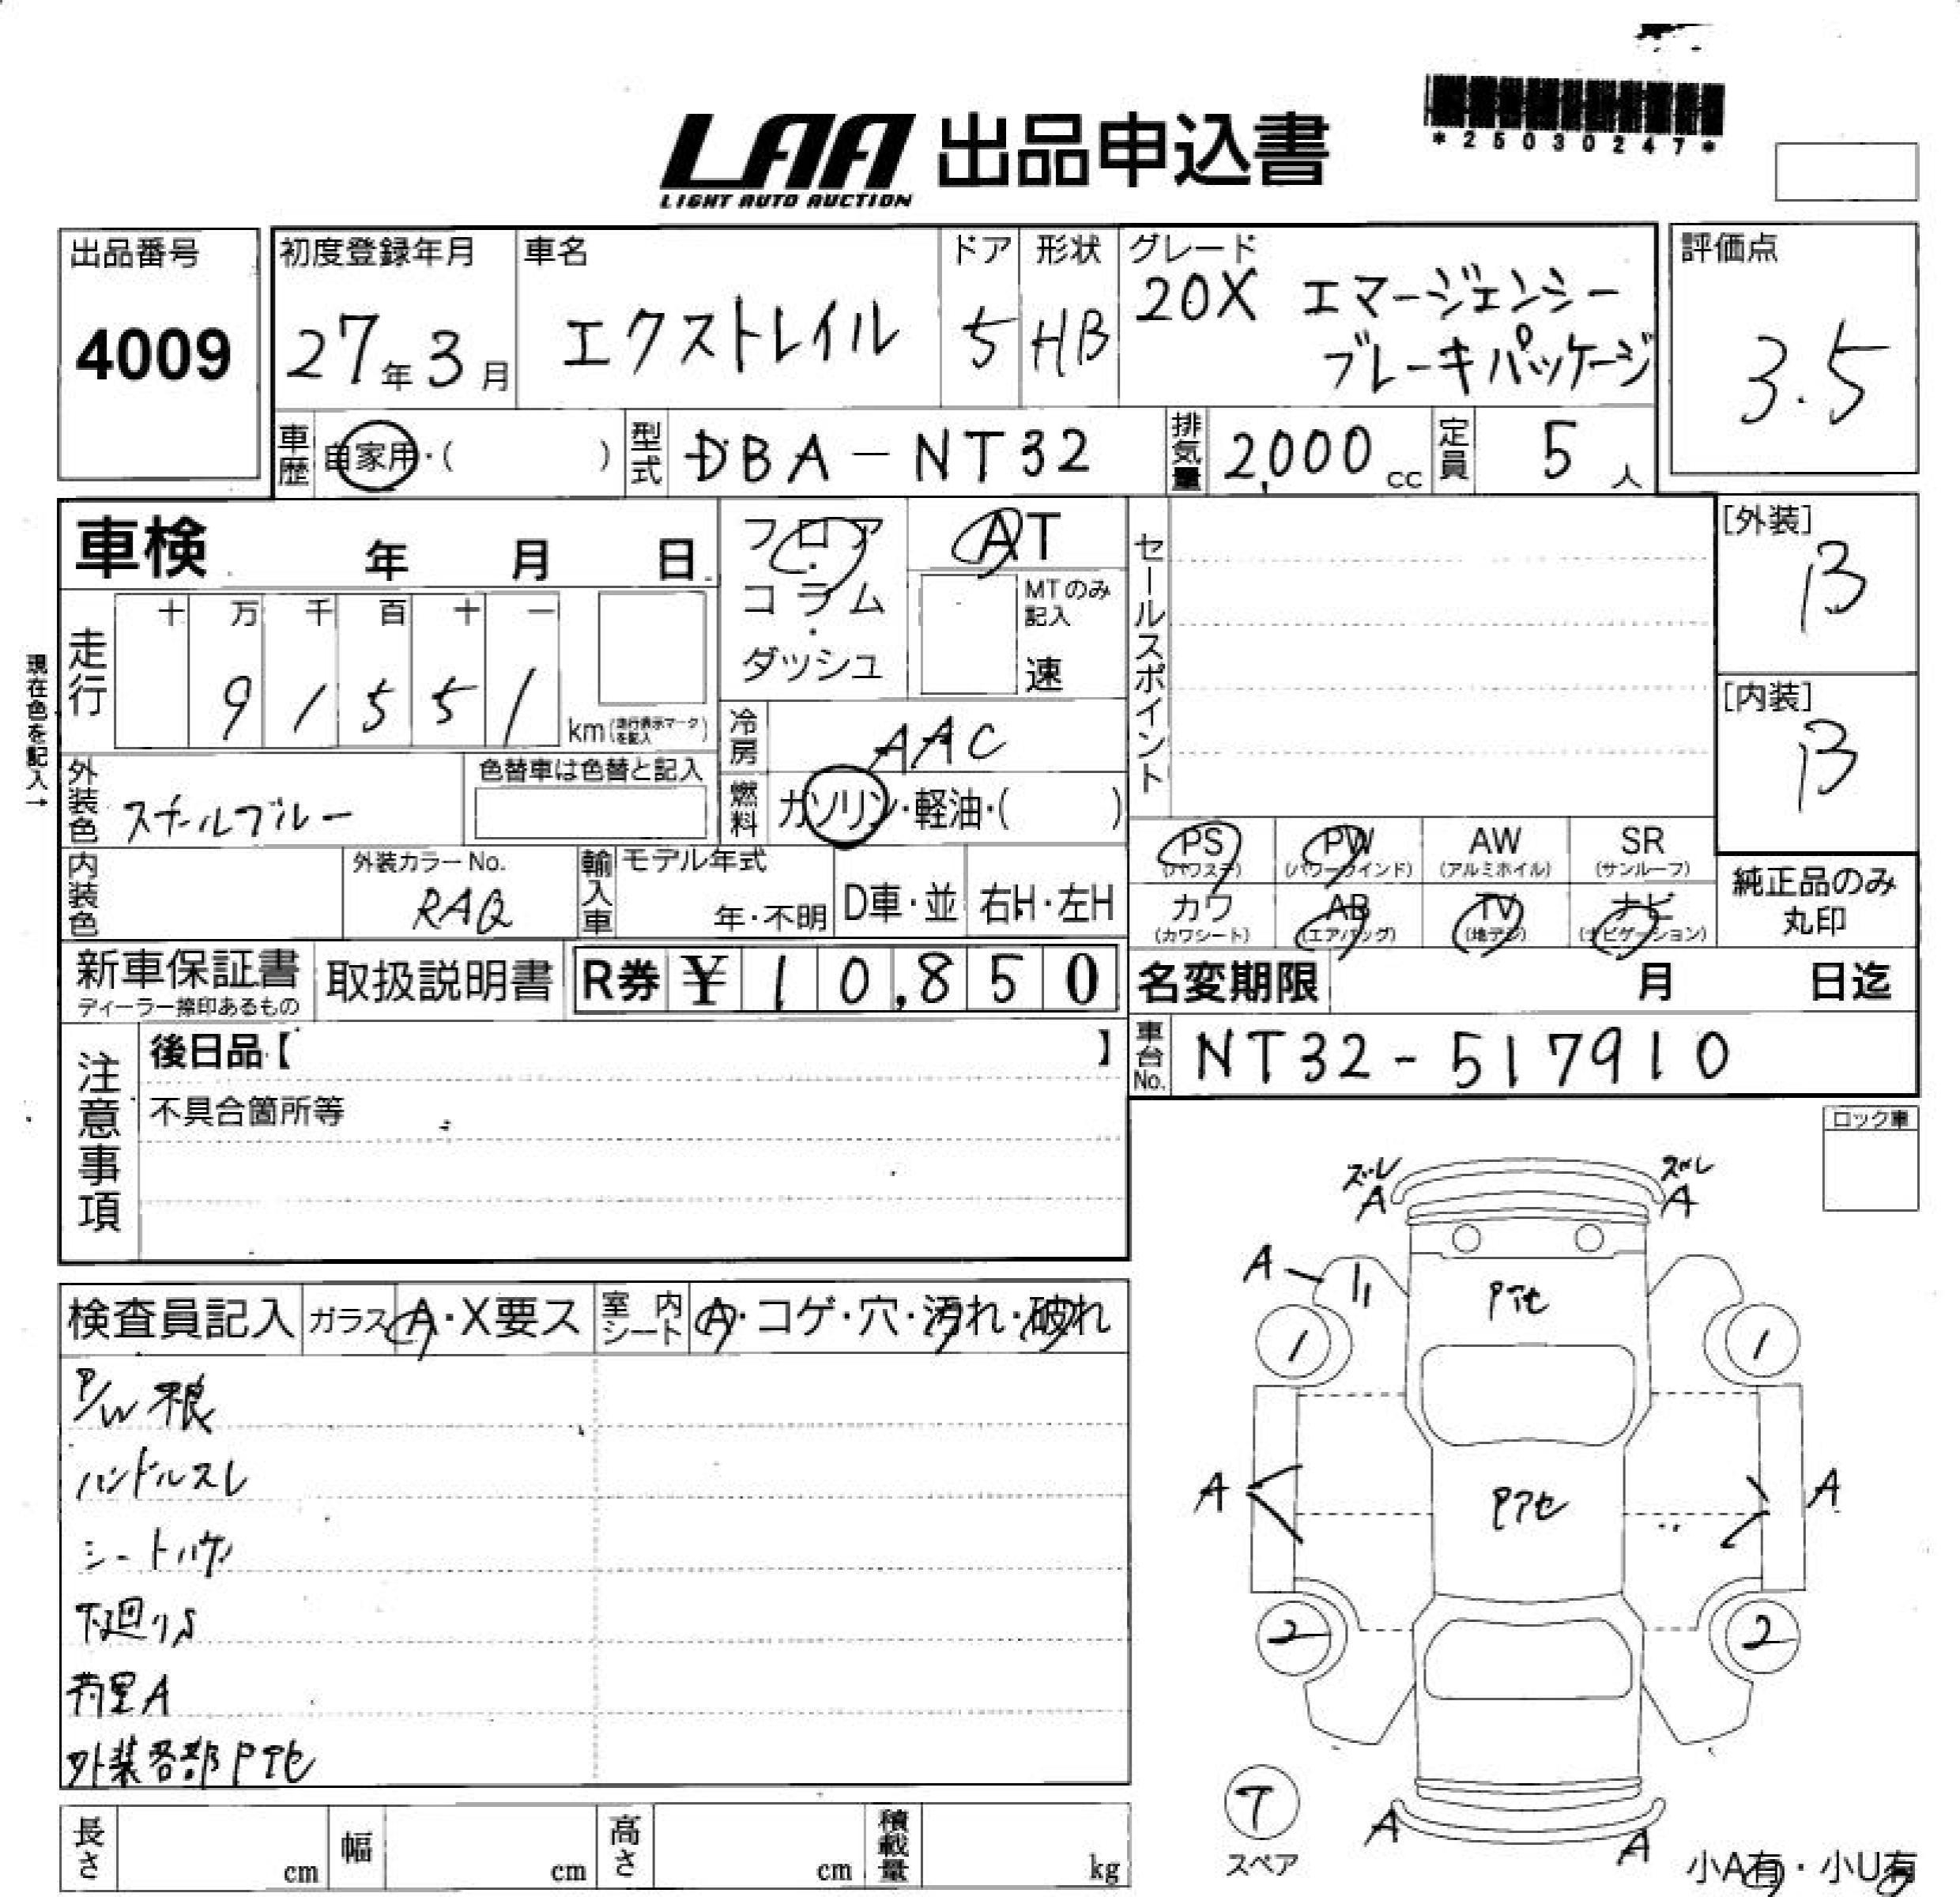 *25030247*
LAA 出品申込書
LIGHT AUTO AUCTION
出品番号
4009
初度登録年月
27年3月
車名
エクストレイル
ドア
5
形状
HB
グレード
20X エマージェンシー
ブレーキパッケージ
評価点
3.5
車歴
自家用・( )
型式
DBA-NT32
排気量
2,000 cc
定員
5 人
車検 年 月 日
フロア
・
コラム
・
ダッシュ
AT
MTのみ
記入
速
セールスポイント
[外装]
B
[内装]
B
現在色を記入→
走行
十 万 千 百 十 一
9 1 5 5 1
km(走行表示マークを記入)
冷房
AAC
外装色
スチールブルー
色替車は色替と記入
燃料
ガソリン・軽油・( )
PS AB PW AW SR
(パワステ) (パワーウインド) (アルミホイル) (サンルーフ)
カワ AB TV ナビ
(カワシート) (エアバッグ) (地デジ) (ナビゲーション)
純正品のみ
丸印
内装色
外装カラーNo.
RAQ
輸入車
モデル年式
年・不明
D車・並
右H・左H
新車保証書
ディーラー捺印あるもの
取扱説明書
R券 ¥ 10,850
名変期限 月 日迄
車台No.
NT32-517910
注意事項
後日品【 】
不具合箇所等
ロック車
ズレ
A
ズレ
A
A
Pアセ
1
1
A
Pアセ
A
2
2
検査員記入
ガラス
A・X要ス
室内シート
A・コゲ・穴・汚れ・破れ
P/W 根
ハンドルスレ
シートハゲ
下廻りS
荷室A
外装各部Pアセ
T
スペア
A
A
小A有・小U有
長さ cm
幅 cm
高さ cm
積載量 kg